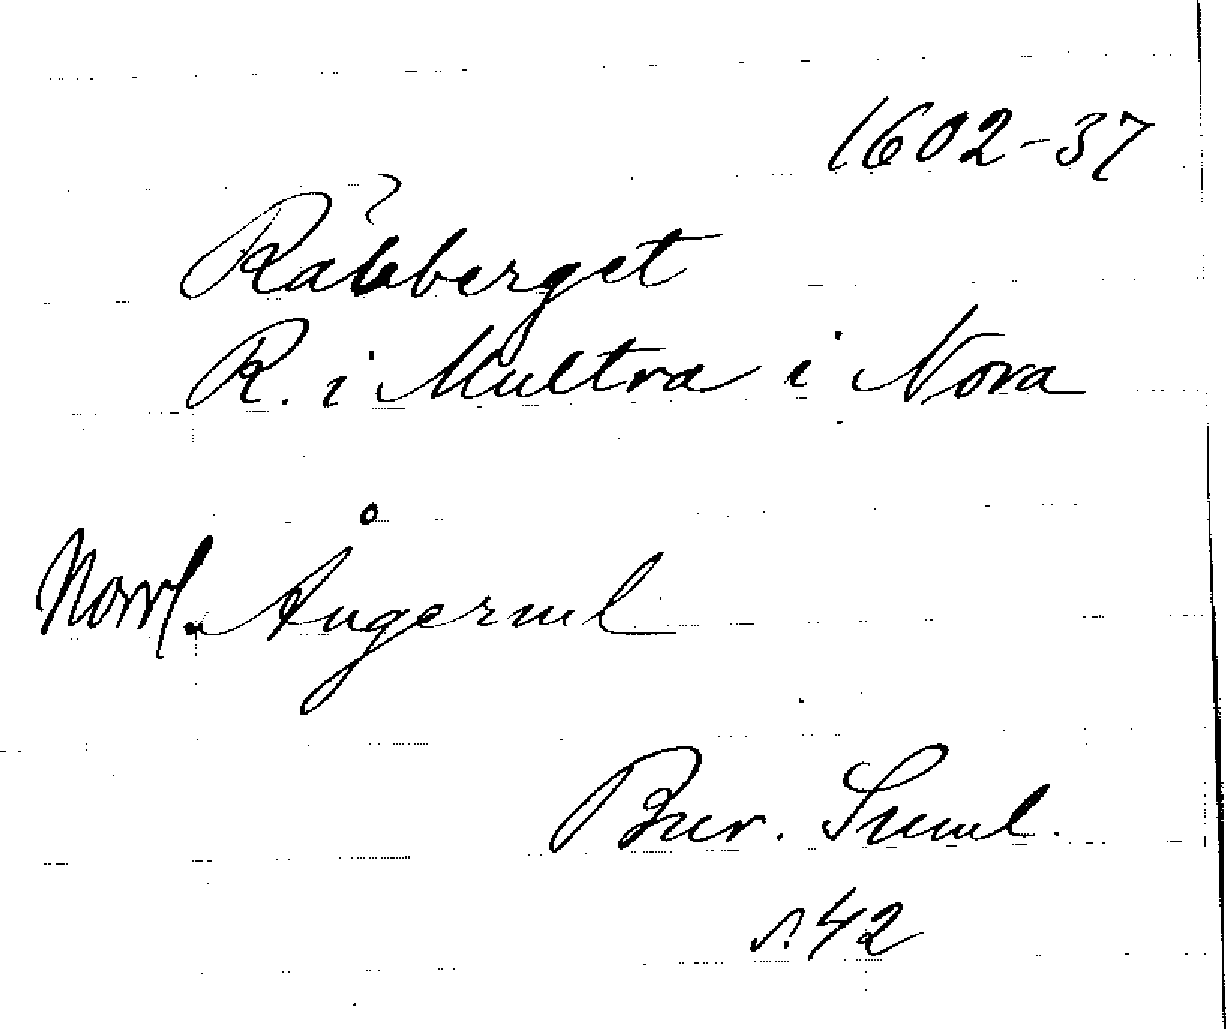 1602-37
Rabberget
R. i Multra i Nora
Norrl. Ångerml
Bur. Suml.
s. 42